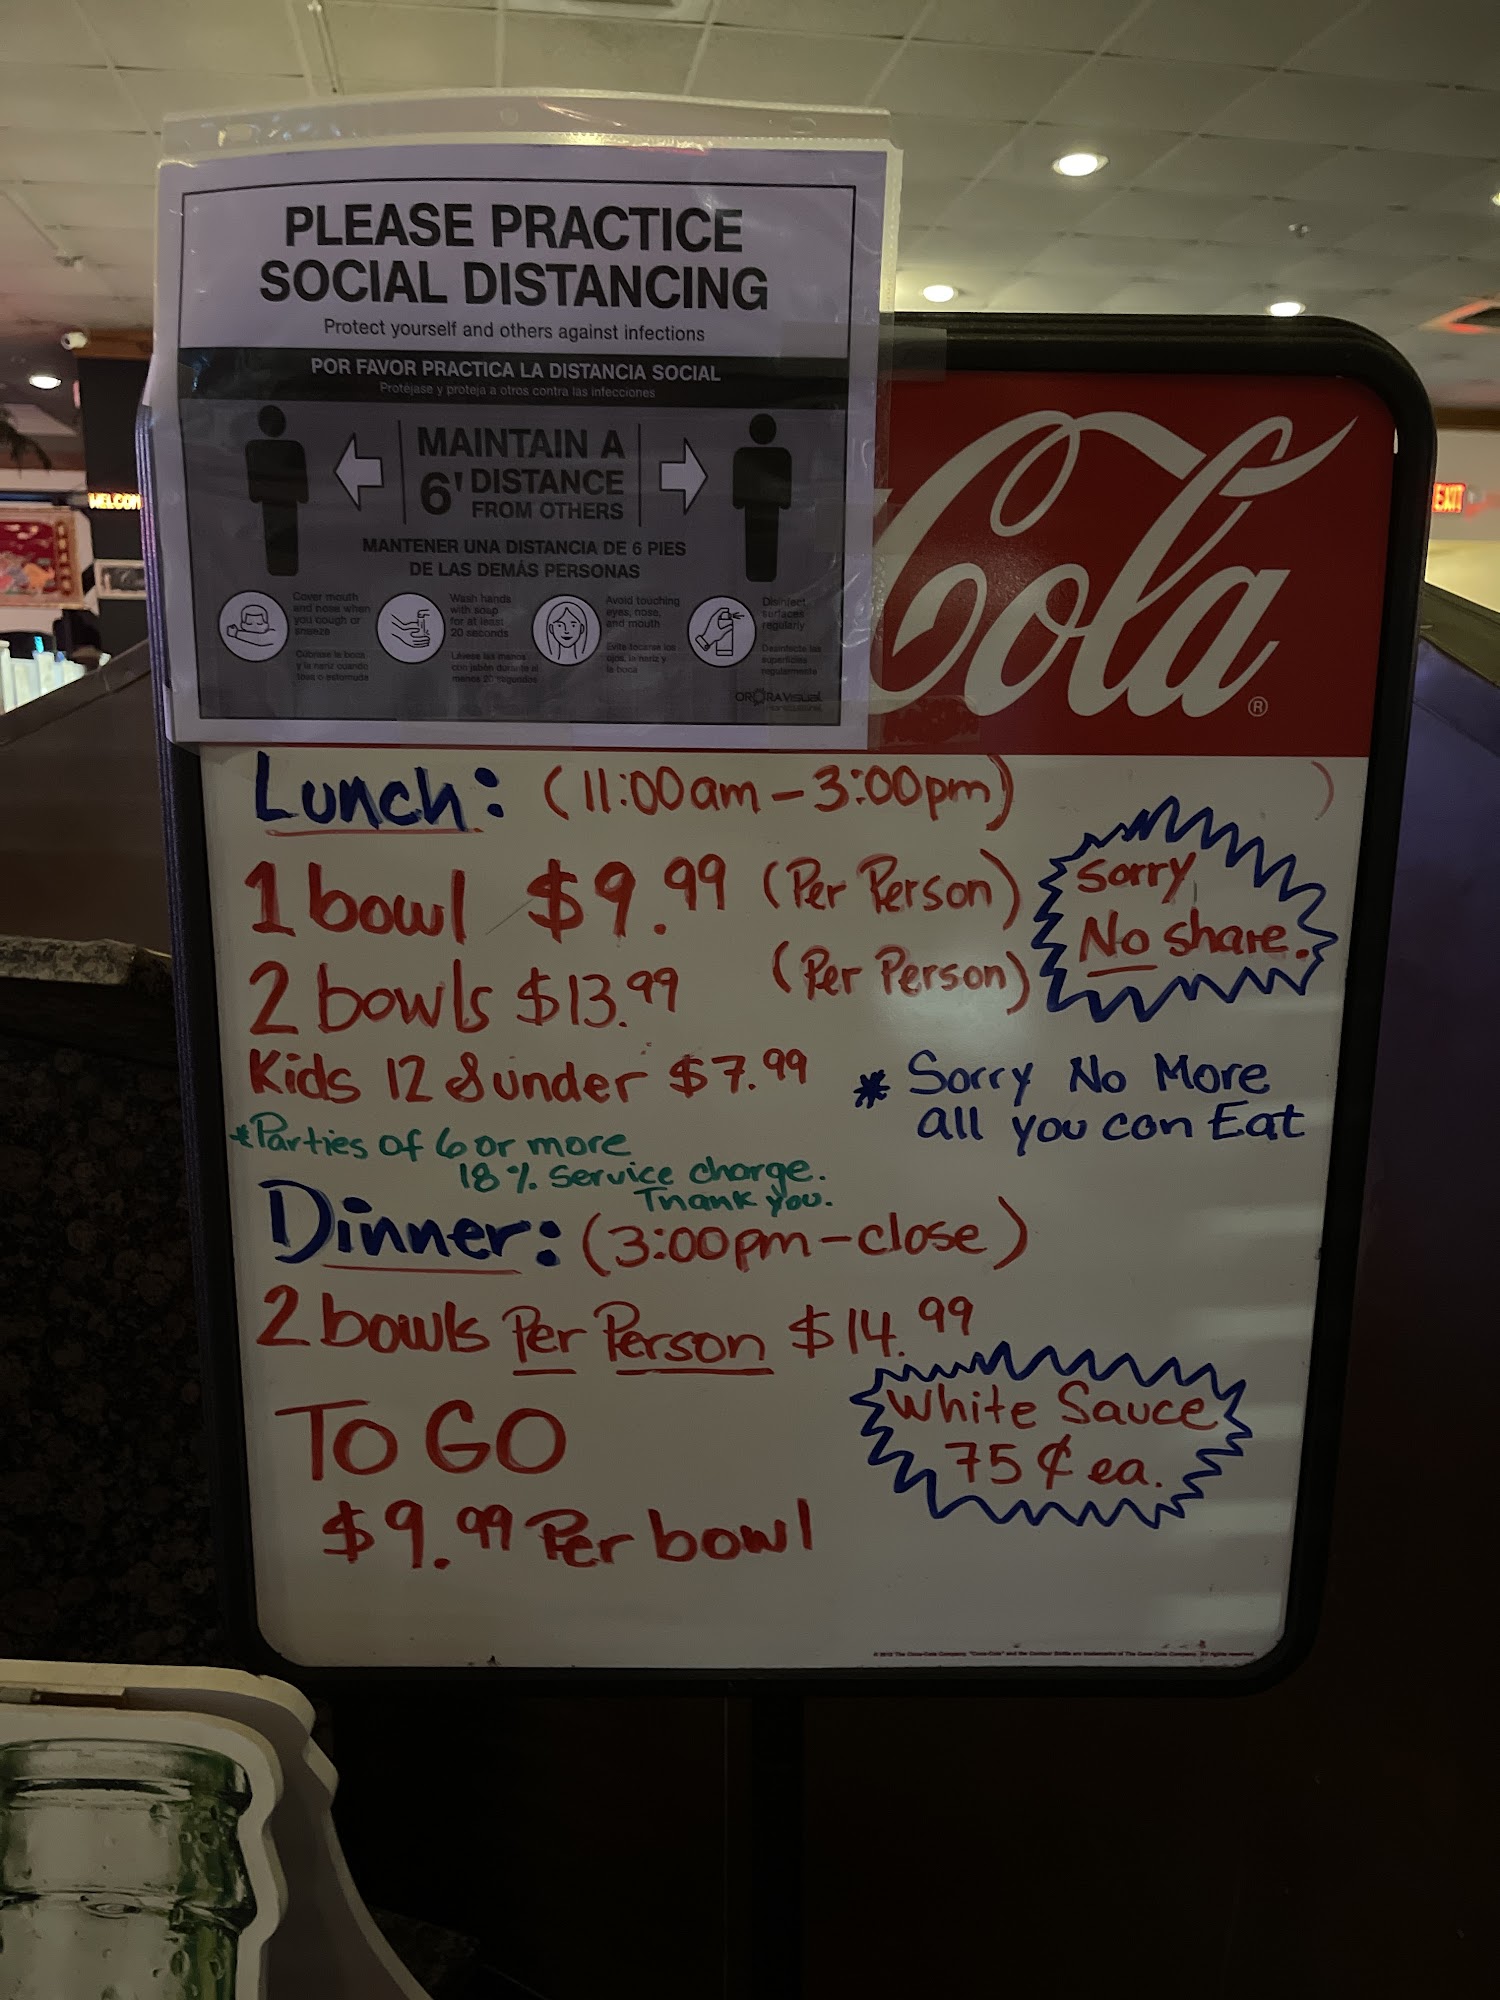 PLEASE PRACTICE
SOCIAL DISTANCING
Protect yourself and others against infections
POR FAVOR PRACTICA LA DISTANCIA SOCIAL
Protéjase y proteja a otros contra las infecciones
MAINTAIN A
6' DISTANCE
FROM OTHERS
MANTENER UNA DISTANCIA DE 6 PIES
DE LAS DEMÁS PERSONAS
Cover mouth
and nose when
you cough or
sneeze
Cúbrase la boca
y la nariz cuando
tosa o estornuda
Wash hands
with soap
for at least
20 seconds
Lávese las manos
con jabón durante al
menos 20 segundos
Avoid touching
eyes, nose,
and mouth
Evite tocarse los
ojos, la nariz y
la boca
Disinfect
surfaces
regularly
Desinfecte las
superficies
regularmente
Cola®
WELCOM
EXIT
Lunch: (11:00am-3:00pm) )
1 bowl $9.99 (Per Person)
2 bowls $13.99 (Per Person)
Sorry
No share.
Kids 12 & under $7.99
* Sorry No More
all you can Eat
*Parties of 6 or more
18% service charge.
Thank you.
Dinner: (3:00pm-close)
2 bowls Per Person $14.99
White Sauce
75¢ ea.
TO GO
$9.99 Per bowl